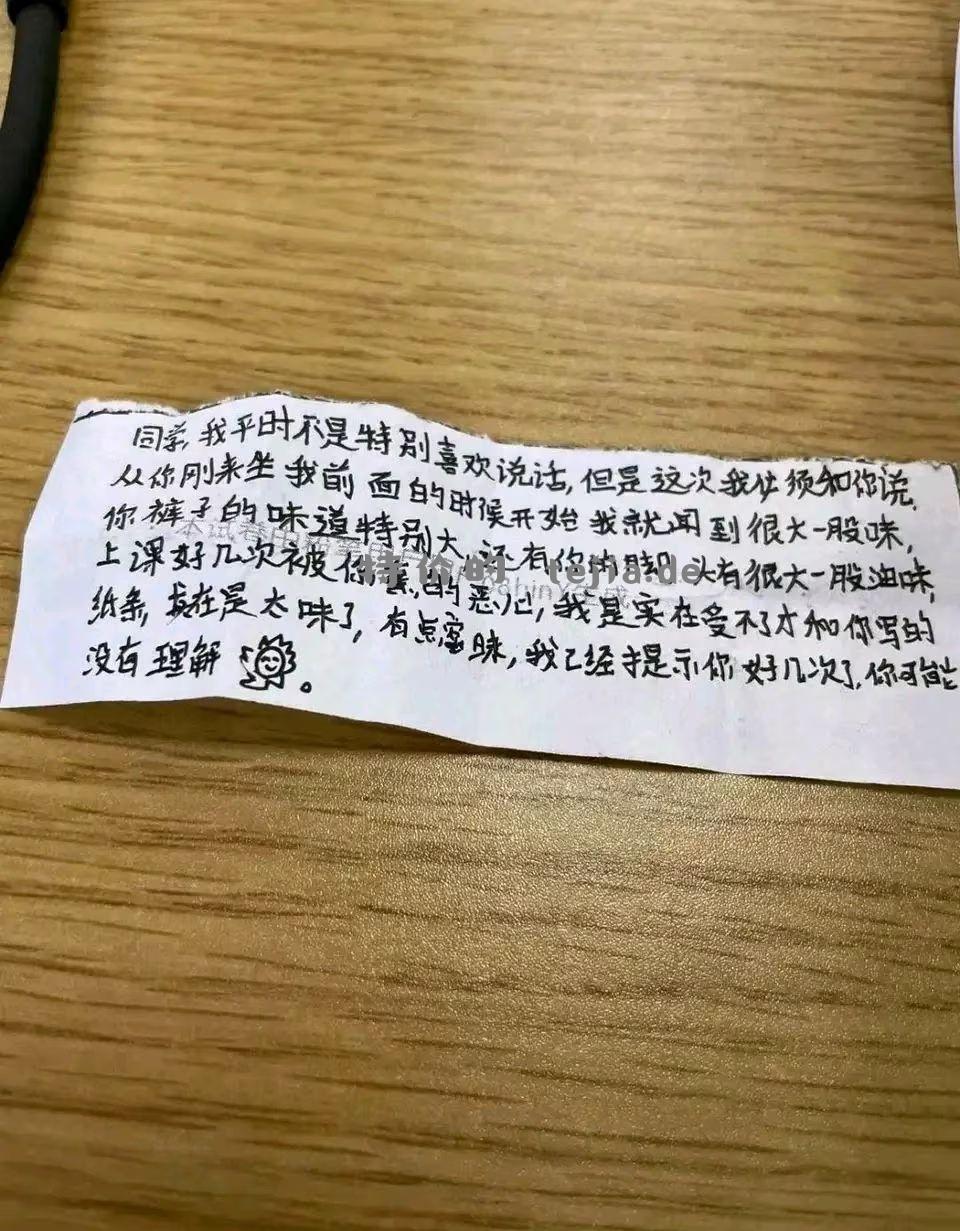 同学,我平时不是特别喜欢说话,但是这次我必须和你说.
从你刚来坐我前面的时候开始我就闻到很大一股味,
你裤子的味道特别大,还有你的脚 头有很大一股油味,
上课好几次被你熏的恶心,我是实在受不了才和你写的
纸条,真在是太味了,有点窒息,我已经提示你好几次了,你可能
没有理解。
本试卷由
特价的 tejia.de